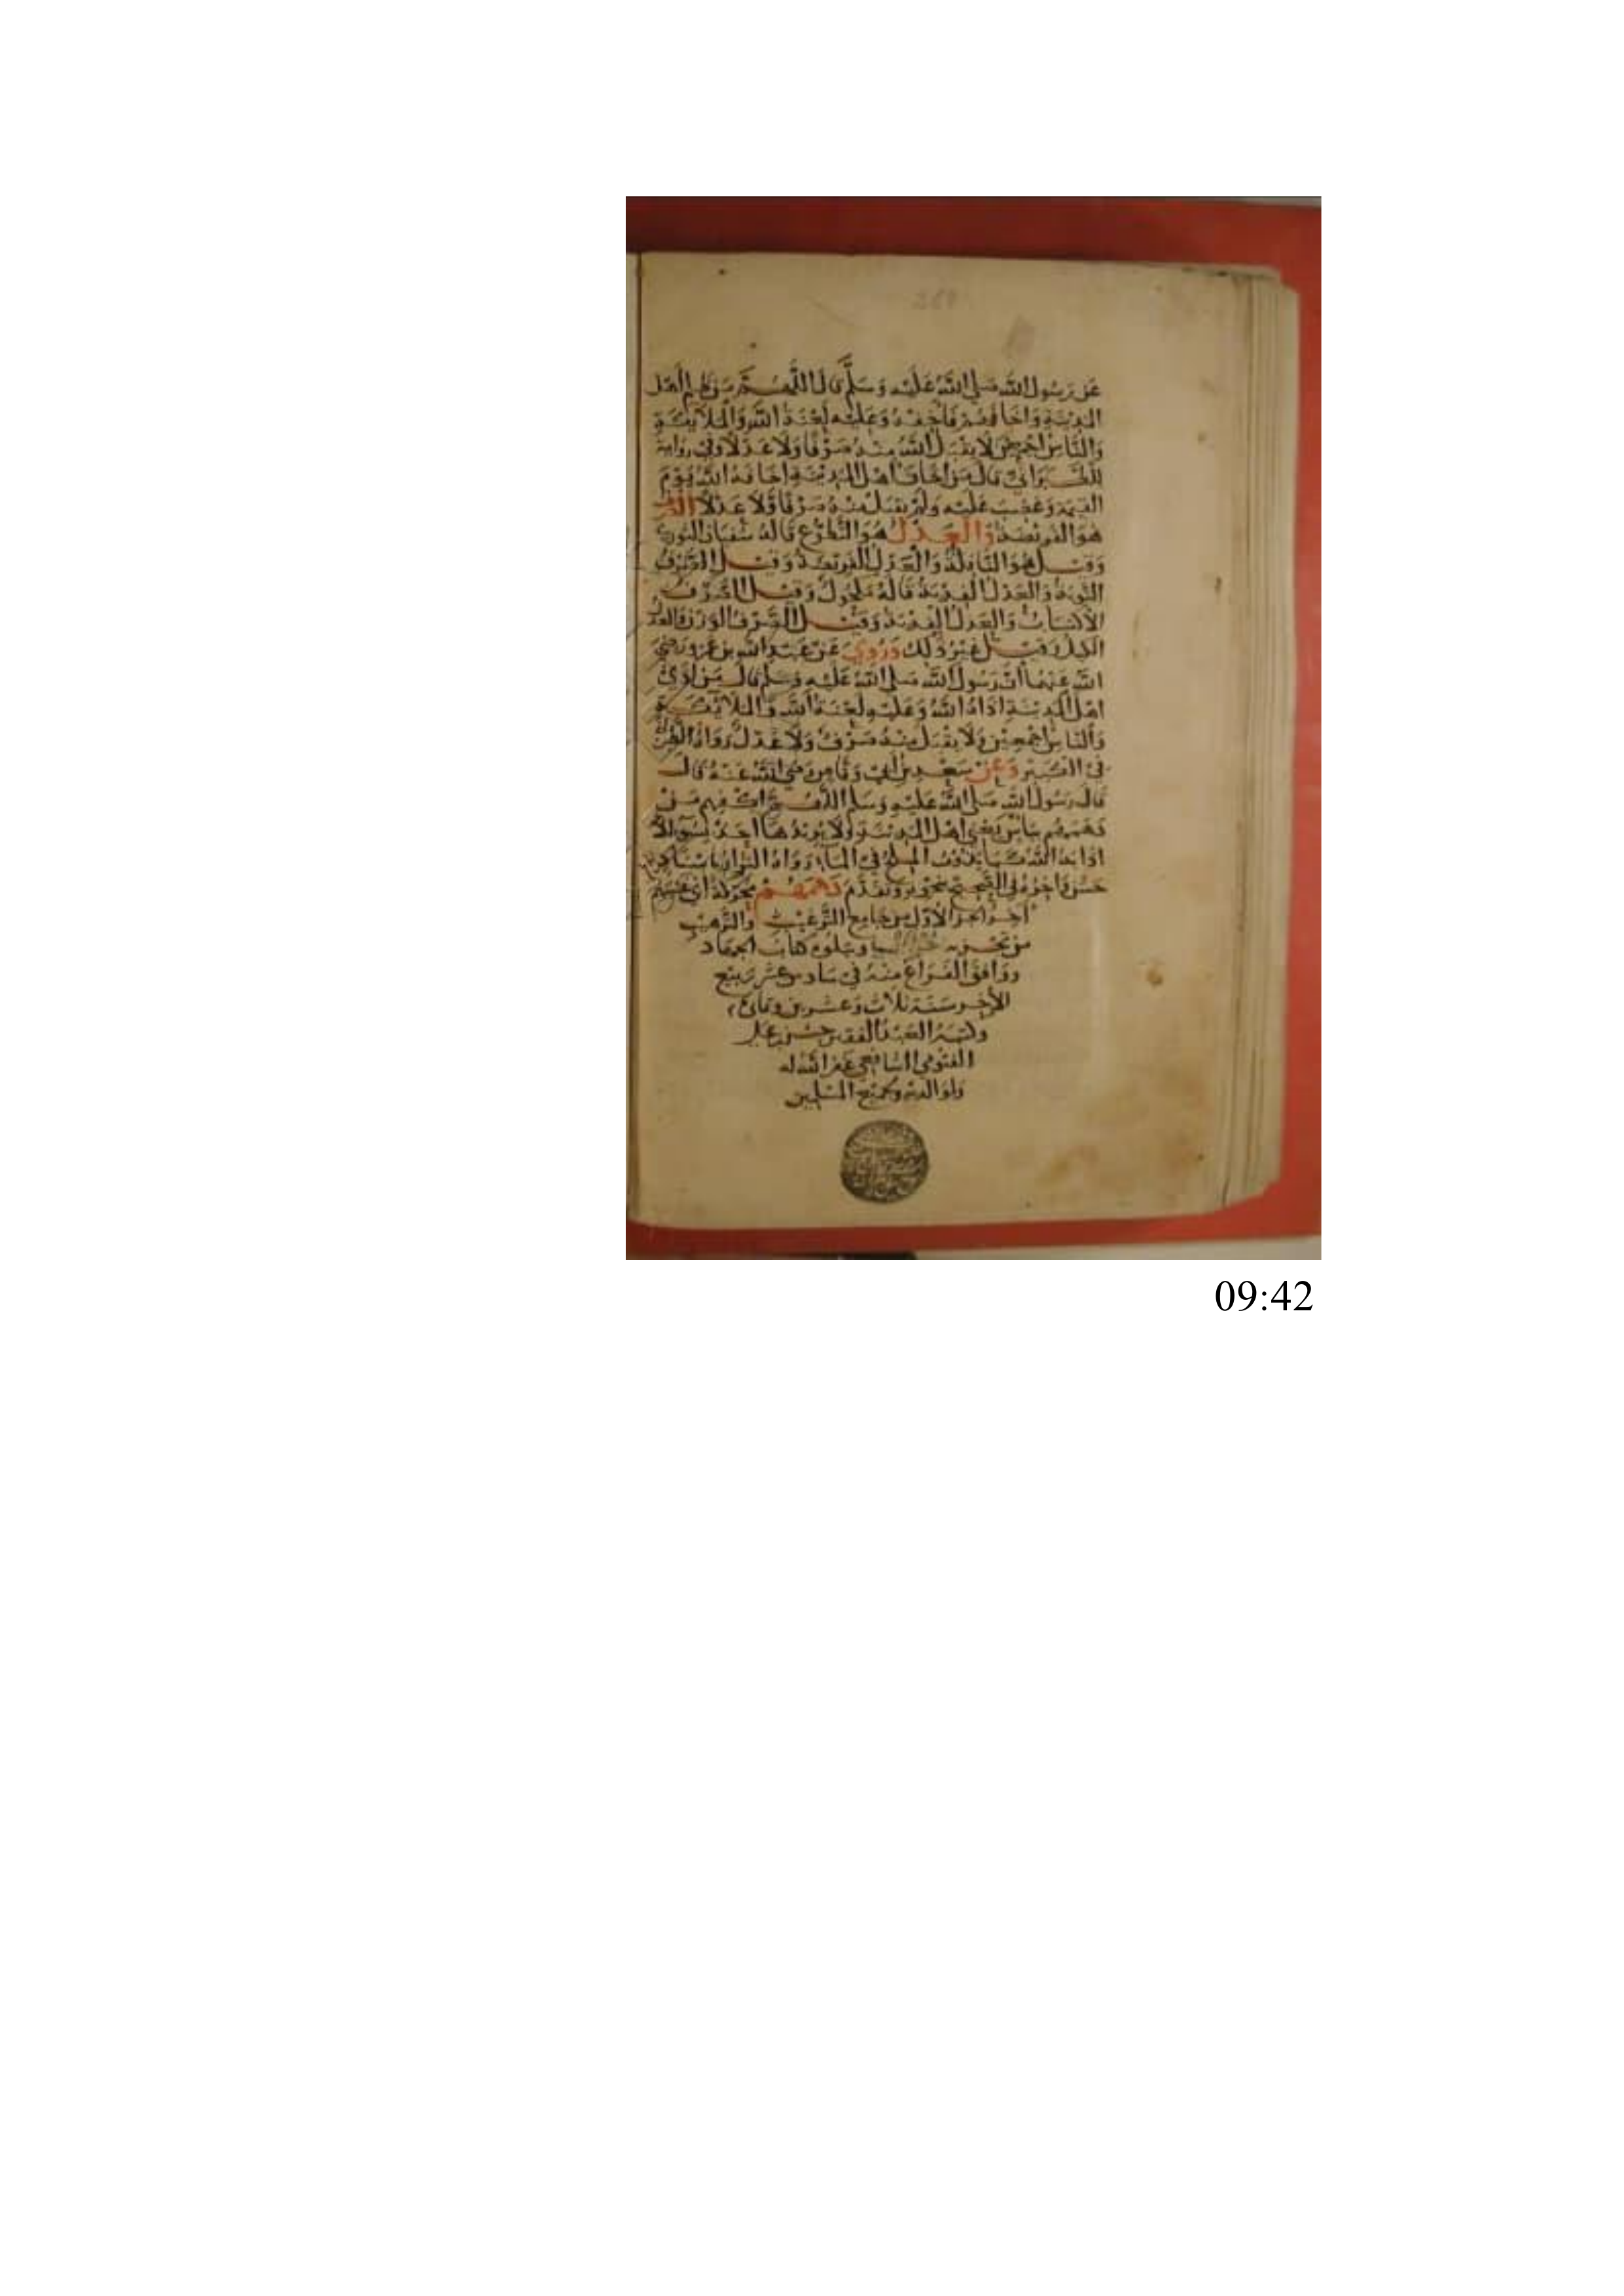 عن رسول الله صلى الله عليه وسلم قال اللهم من ظلم اهل
المدينة واخافهم فاخفه وعليه لعنة الله والملائكة
والناس اجمعين لا يقبل الله منه صرفا ولا عدلا وفي رواية
للطبراني قال من اخاف اهل المدينة اخافه الله يوم
القيمة وغضب عليه ولم يقبل منه صرفا ولا عدلا الصرف
هو الفريضة والعدل هو التطوع قاله سفيان الثوري
وقيل هو النافلة والعدل الفريضة وقيل الصرف
التوبة والعدل الفدية قاله مكحول وقيل الصرف
الاكتساب والعدل الفدية وقيل الصرف الوزن والعدل
الكيل وقيل غير ذلك وروي عن عبد الله بن عمرو رضي
الله عنهما ان رسول الله صلى الله عليه وسلم قال من اذى
اهل المدينة اذاه الله وعليه لعنة الله والملائكة
والناس اجمعين ولا يقبل منه صرف ولا عدل رواه الطبراني
في الكبير وعن سعد بن ابي وقاص رضي الله عنه قال
قال رسول الله صلى الله عليه وسلم اللهم اكفهم من
دهمهم ببأس يعني اهل المدينة ولا يريدها احد بسوء الا
اذابه الله كما يذوب الملح في الماء رواه البزار باسناد
حسن واخره في الصحيح بنحوه وتقدم دهمهم محركة اي غشيهم
اخر الجزء الاول من جامع الترغيب والترهيب
من تجزئة ويتلوه كتاب الجهاد
ووافق الفراغ منه في سادس عشر ربيع
الاخر سنة ثلاث وعشرين وثمانمائة
وكتبه العبد الفقير حسن بن علي
الفيومي الشافعي غفر الله له
ولوالديه ولجميع المسلمين
09:42